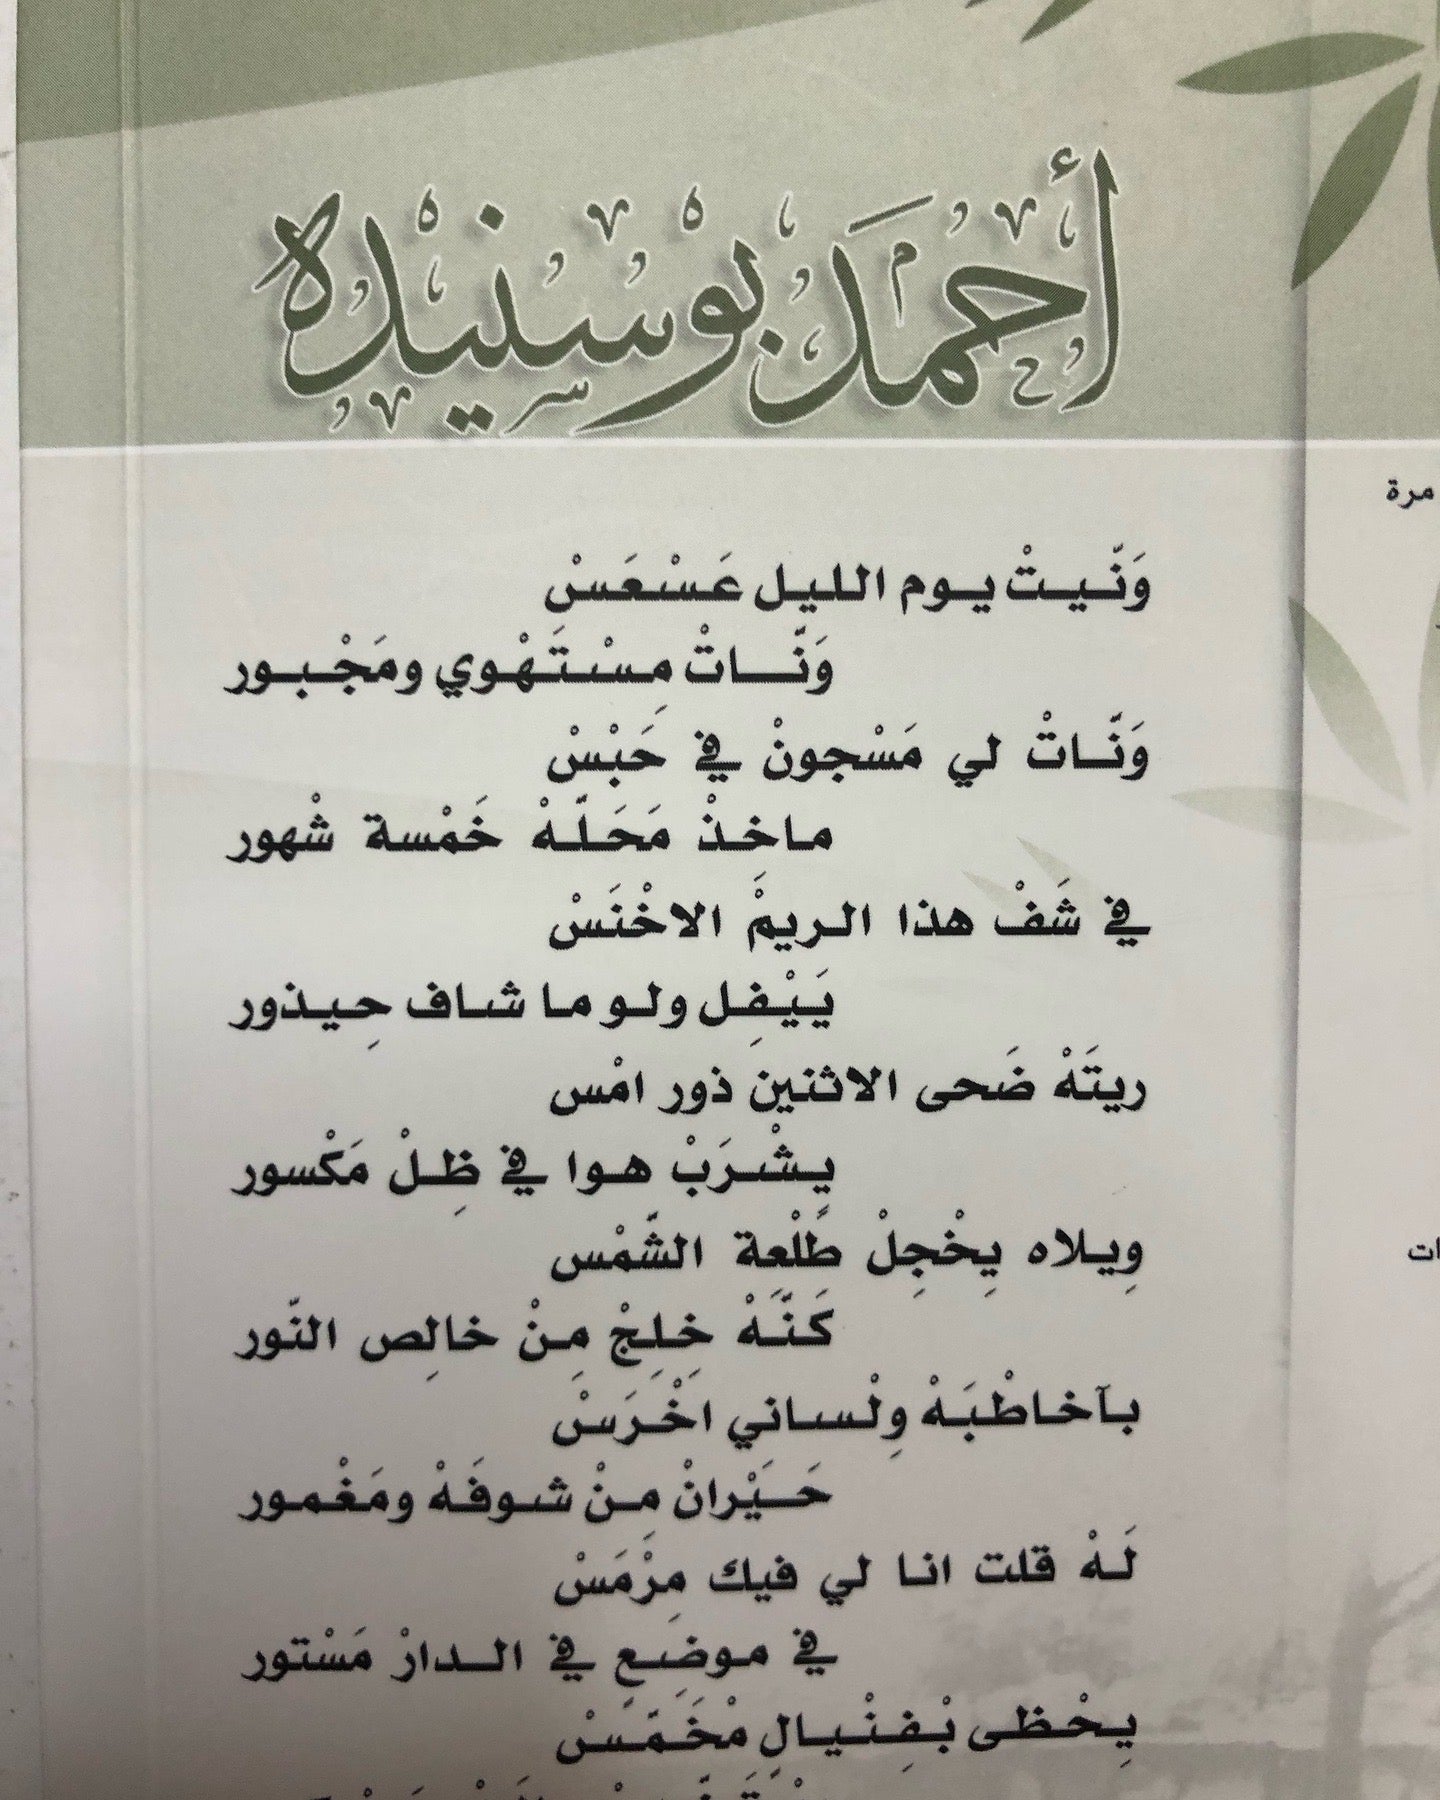 أحمد بوسنيده
مرة
وَنّيتْ يوم الليل عَسْعَسْ
وَنّاتْ مِسْتَهْوي ومَجْبور
وَنّاتْ لي مَسْجونْ في حَبْسْ
ماخذْ مَحَلّهْ خَمْسة شْهور
في شَفْ هذا الريمْ الاخْنَسْ
يَيْفِل ولو ما شاف حِيذور
ريتَهْ ضَحى الاثنين ذور امْس
يِشْرَبْ هوا في ظِلْ مَكْسور
وِيلاه يِخْجِلْ طَلْعِة الشّمْس
ات
كَنّهْ خِلِجْ مِنْ خالِص النّور
بآخاطْبَهْ وِلْساني اخْرَسْ
حَيْرانْ مِنْ شوفَهْ ومَغْمور
لَهْ قلت انا لي فيك مِرْمَسْ
في موضِعٍ في الدارْ مَسْتور
يِحْظى بْفِنْيالٍ مْخَمّسْ